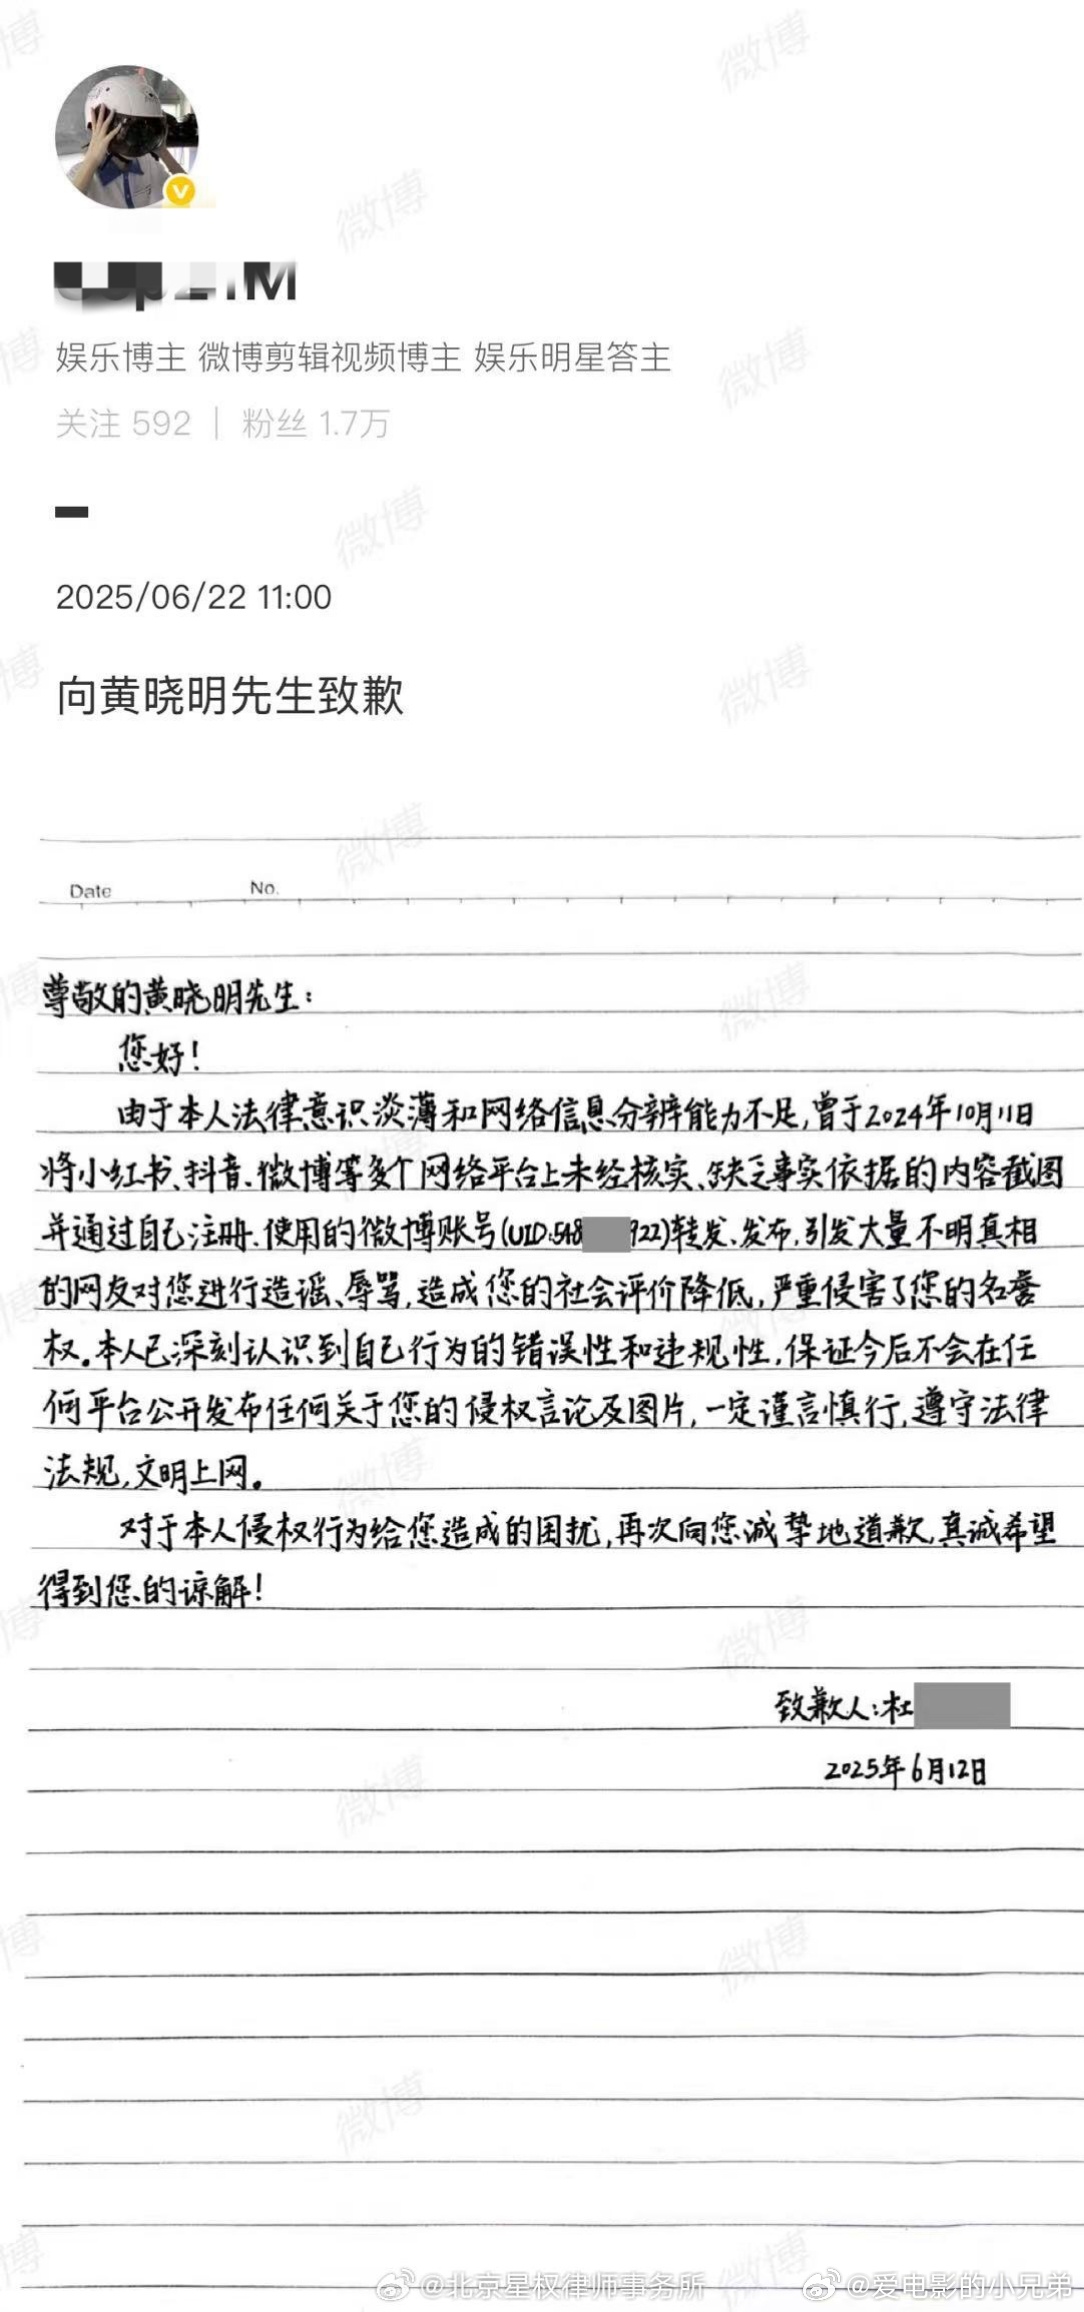 娱乐博主 微博剪辑视频博主 娱乐明星答主
关注 592 | 粉丝 1.7万
2025/06/22 11:00
向黄晓明先生致歉
Date No.
尊敬的黄晓明先生：
您好！
由于本人法律意识淡薄和网络信息分辨能力不足，曾于2024年10月11日
将小红书、抖音、微博等多个网络平台上未经核实、缺乏事实依据的内容截图
并通过自己注册、使用的微博账号(UID:548 922)转发、发布，引发大量不明真相
的网友对您进行造谣、辱骂，造成您的社会评价降低，严重侵害了您的名誉
权。本人已深刻认识到自己行为的错误性和违规性，保证今后不会在任
何平台公开发布任何关于您的侵权言论及图片，一定谨言慎行，遵守法律
法规，文明上网。
对于本人侵权行为给您造成的困扰，再次向您诚挚地道歉，真诚希望
得到您的谅解！
致歉人：杜
2025年6月12日
@北京星权律师事务所 @爱电影的小兄弟